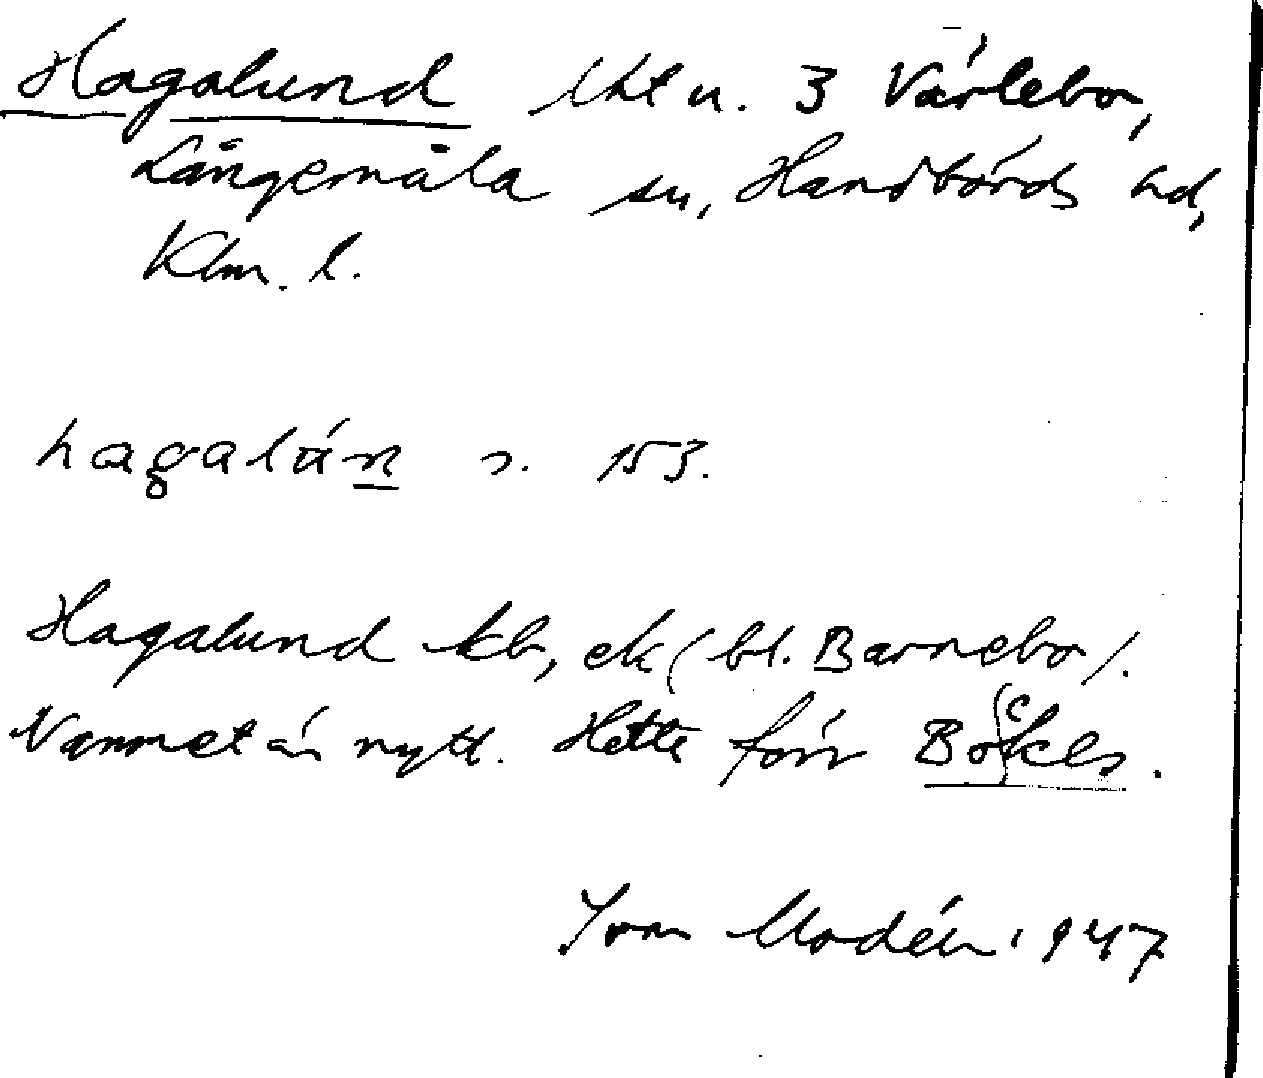 Hagalund lht u. 3 Värlebo,
Långemåla sn, Handbörds hd,
Klm. l.
hagalún s. 153.
Hagalund kb, ek (bl. Barnebo).
Namnet är nytt. Hette förr Bökes.
Ivar Modéer 1947